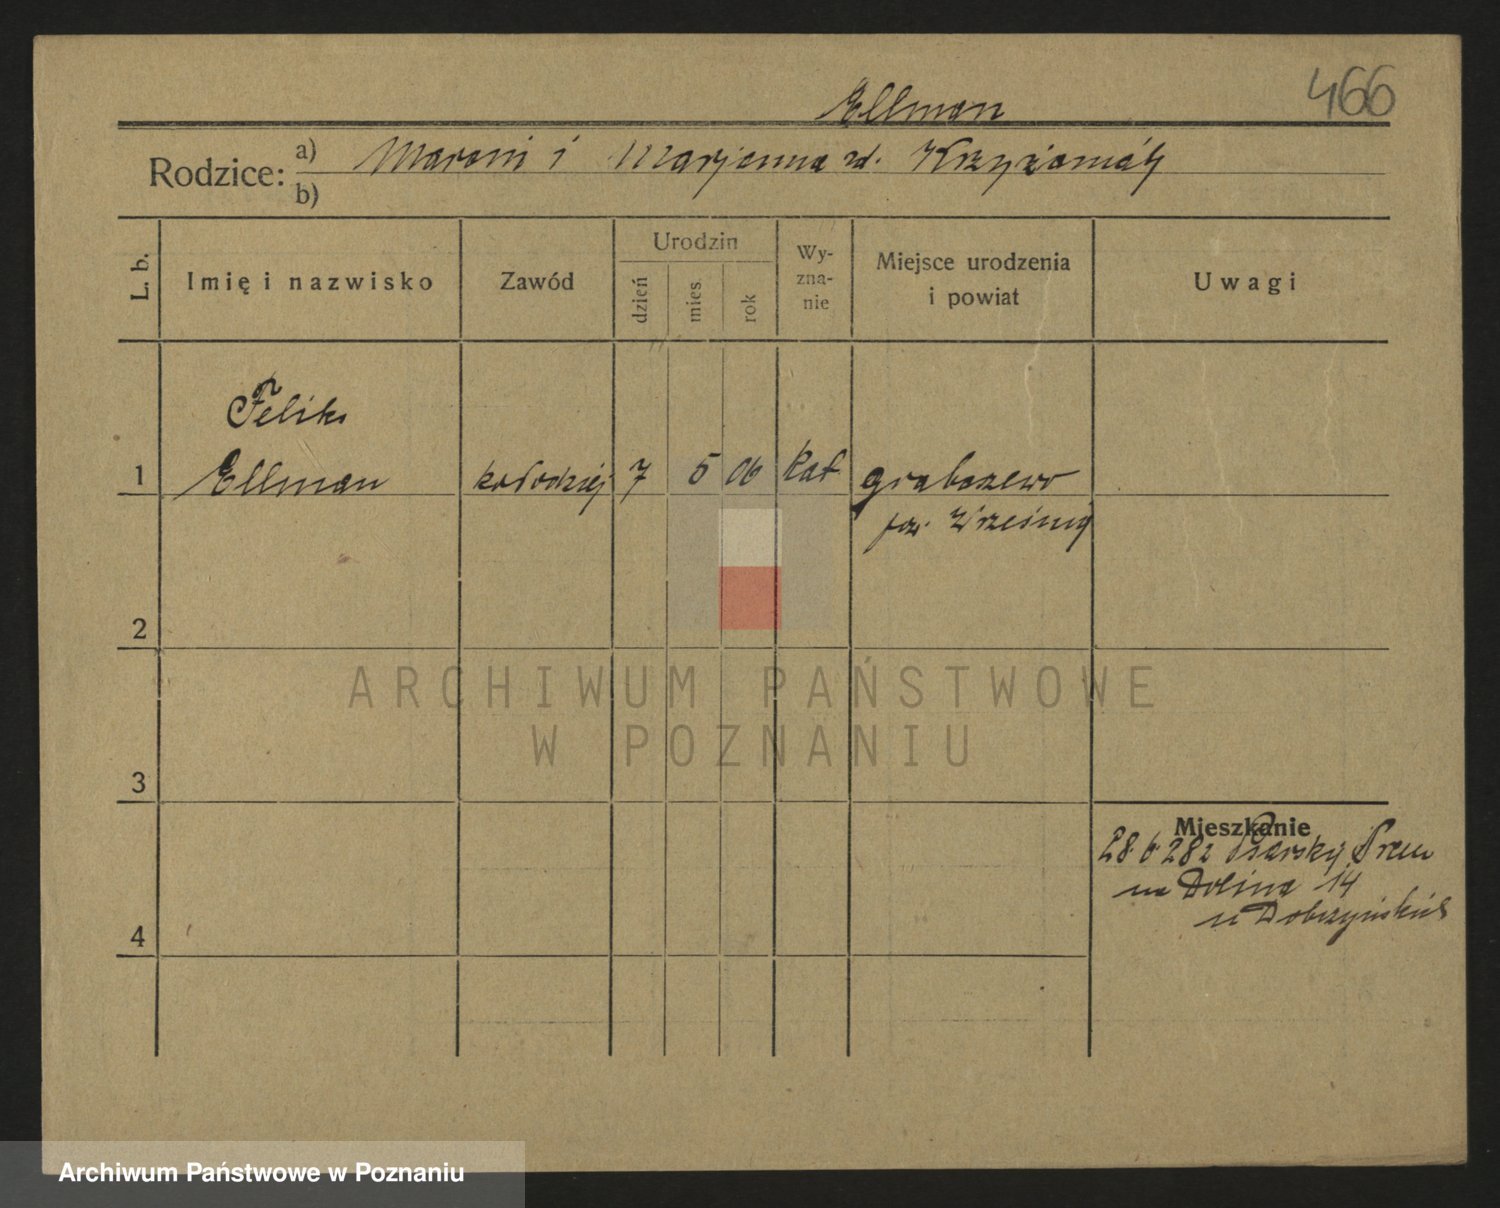 Ellman
466
Rodzice: a) b)
Marcin i Marjanna zd. Krzyżaniak
L. b.
Imię i nazwisko
Zawód
Urodzin
dzień
mies.
rok
Wy-
zna-
nie
Miejsce urodzenia
i powiat
Uwagi
Feliks
1 Ellman kołodziej 7 5 06 kat Graboszewo
pow. Września
2
3
4
Mieszkanie
28.6.28 z Psarsky
na Dolina 14
u Dobrzyńskich
ARCHIWUM PAŃSTWOWE
W POZNANIU
Archiwum Państwowe w Poznaniu